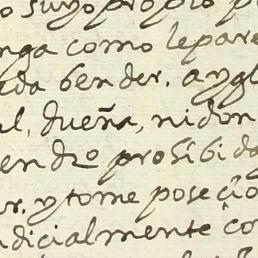 o suyo propio p
nga como lepare
ada bender. aygl
al, dueña, nidon
endro prosibida
ar. ytome poseçio
udicialmente co